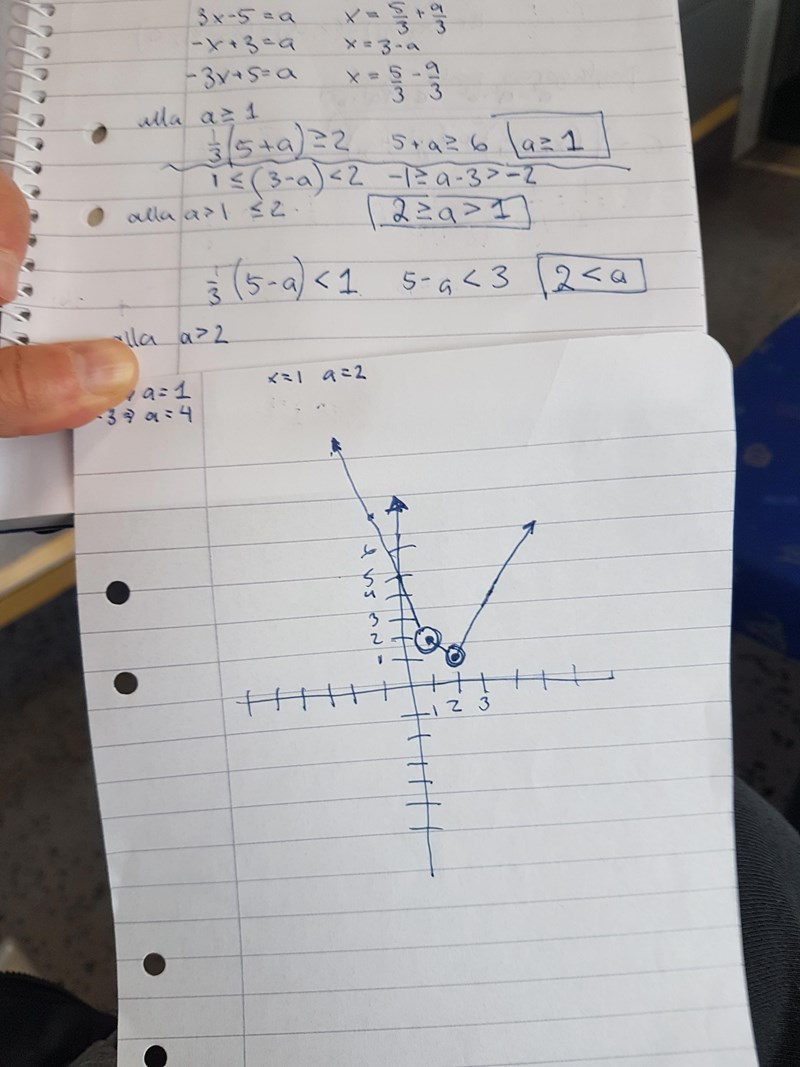 3x-5=a x=5/3+a/3
-x+3=a x=3-a
-3x+5=a x=5/3-a/3
alla a≥1
1/3(5+a)≥2 5+a≥6 a≥1
1≤(3-a)<2 -1≥a-3>-2
alla a>1 ≤2. 2≥a>1
1/3(5-a)<1 5-a<3 2<a
alla a>2
x=1 a=2
a=1
-3⇒ a=4
6
5
4
3
2
1
1 2 3